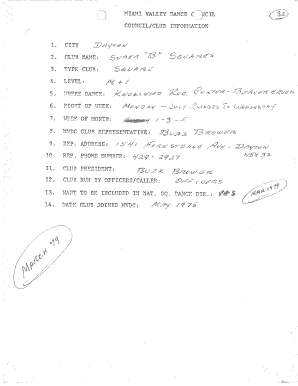 MIAMI VALLEY DANCE COUNCIL
COUNCIL/CLUB INFORMATION
1. CITY DAYTON
2. CLUB NAME: SUPER "B" SQUARES
3. TYPE CLUB: SQUARE
4. LEVEL: M+1
5. WHERE DANCE: KNOLLWOOD REC. CENTER - BEAVERCREEK
6. NIGHT OF WEEK: MONDAY - JULY. CHANGE TO WEDNESDAY
7. WEEK OF MONTH: 1-3-5
8. MVDC CLUB REPRESENTATIVE: BUZZ BREWER
9. REP. ADDRESS: 1541 FIRESTONE AVE - DAYTON
10. REP. PHONE NUMBER: 429-2927
11. CLUB PRESIDENT: BUZZ BREWER
12. CLUB RUN BY OFFICERS/CALLER: OFFICERS
13. WANT TO BE INCLUDED IN NAT. SQ. DANCE DIR.: YES
MAR 1979
14. DATE CLUB JOINED MVDC: MAY 1975
MARCH '79